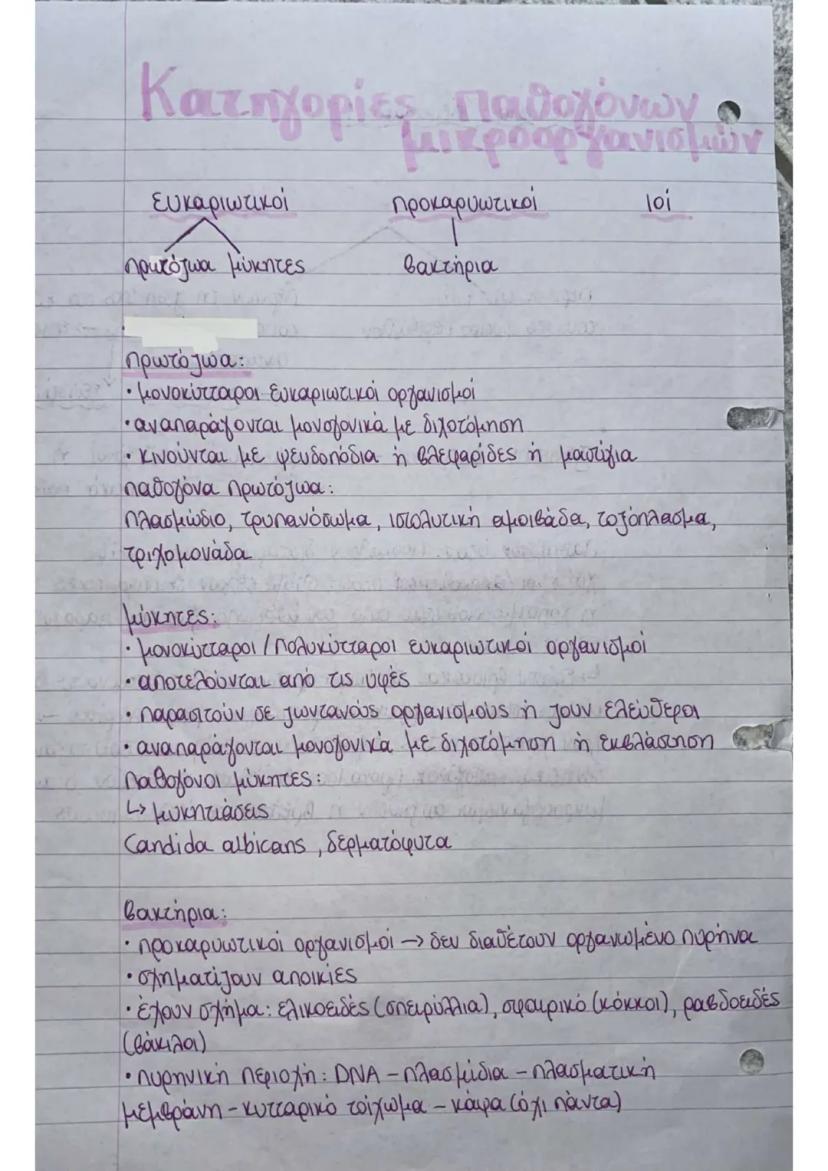 Κατηγορίες παθογόνων
μικροοργανισμών
ευκαριωτικοί προκαρυωτικοί ιοί
πρωτόζωα μύκητες βακτήρια
πρωτόζωα:
· μονοκύτταροι ευκαριωτικοί οργανισμοί
· αναπαράγονται μονογονικά με διχοτόμηση
· κινούνται με ψευδοπόδια ή βλεφαρίδες ή μαστίγια
παθογόνα πρωτόζωα:
πλασμώδιο, τρυπανόσωμα, ιστολυτική αμοιβάδα, τοξόπλασμα,
τριχομονάδα
μύκητες:
· μονοκύτταροι/πολυκύτταροι ευκαριωτικοί οργανισμοί
· αποτελούνται από τις υφές
· παρασιτούν σε ζωντανούς οργανισμούς ή ζουν ελεύθεροι
· αναπαράγονται μονογονικά με διχοτόμηση ή εκβλάστηση
παθογόνοι μύκητες:
↳ μυκητιάσεις
Candida albicans, δερματόφυτα
βακτήρια:
· προκαρυωτικοί οργανισμοί → δεν διαθέτουν οργανωμένο πυρήνα
· σχηματίζουν αποικίες
· έχουν σχήμα: ελικοειδές (σπειρύλλια), σφαιρικό (κόκκοι), ραβδοειδές
(βάκιλοι)
· πυρηνική περιοχή: DNA - πλασμίδια - πλασματική
μεμβράνη - κυτταρικό τοίχωμα - κάψα (όχι πάντα)